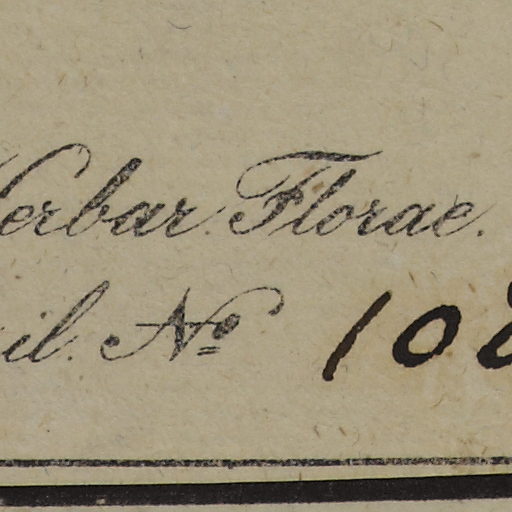 Herbar. Florae.
il. No 10